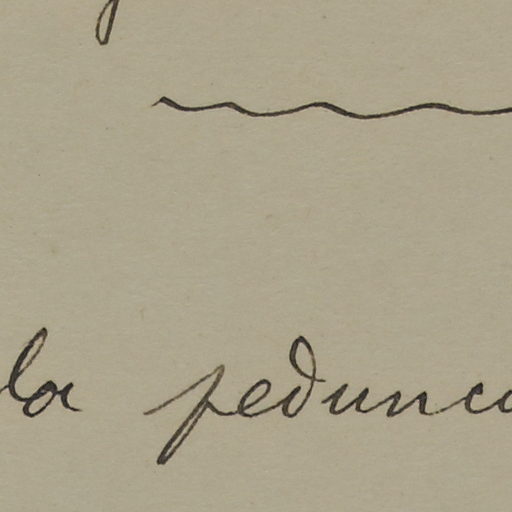 la pedunc